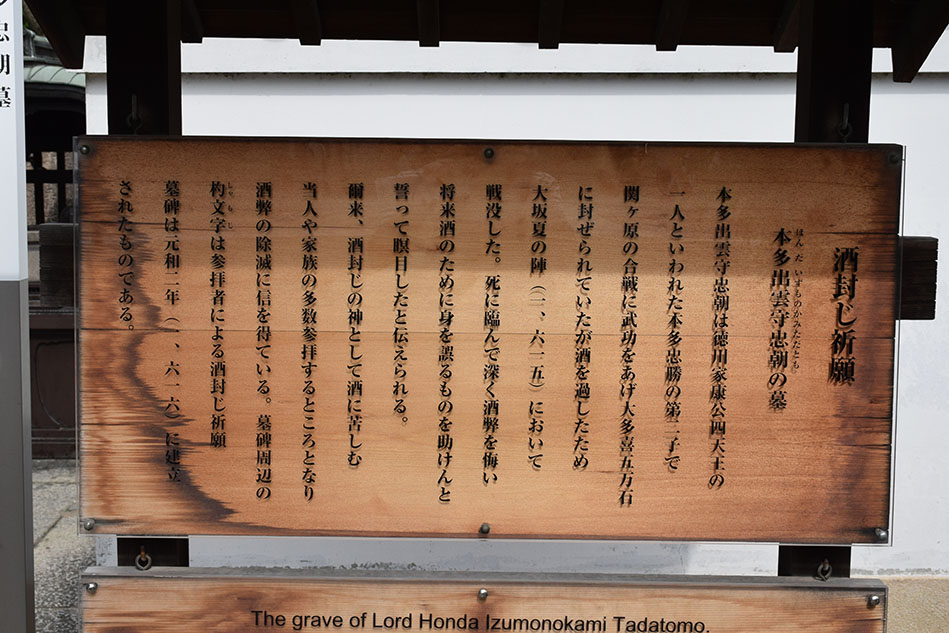 酒封じ祈願
ほんだ いずものかみただとも
本多出雲守忠朝の墓
本多出雲守忠朝は徳川家康公四天王の
一人といわれた本多忠勝の第二子で
関ヶ原の合戦に武功をあげ大多喜五万石
に封ぜられていたが酒を過したため
大坂夏の陣（一、六一五）において
戦没した。死に臨んで深く酒弊を悔い
将来酒のために身を誤るものを助けんと
誓って瞑目したと伝えられる。
爾来、酒封じの神として酒に苦しむ
当人や家族の多数参拝するところとなり
酒弊の除滅に信を得ている。墓碑周辺の
しゃもじ
杓文字は参拝者による酒封じ祈願
墓碑は元和二年（一、六一六）に建立
されたものである。
忠朝墓
The grave of Lord Honda Izumonokami Tadatomo.